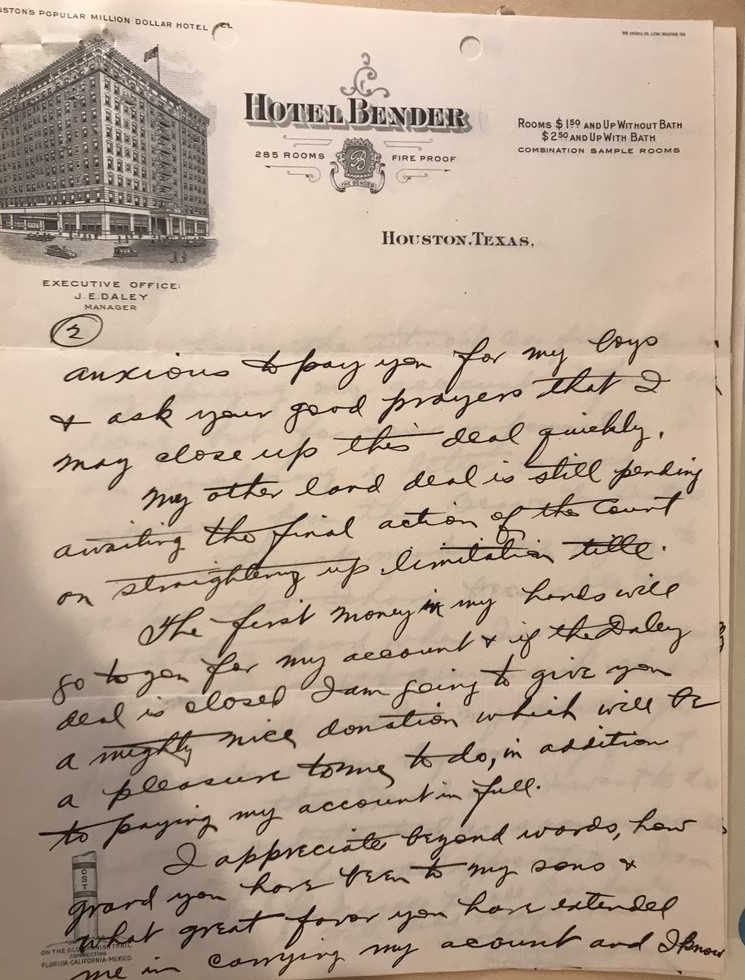 STON'S POPULAR MILLION DOLLAR HOTEL
HOTEL BENDER
285 ROOMS FIRE PROOF
B
THE BENDER
ROOMS $1.50 AND UP WITHOUT BATH
$2.50 AND UP WITH BATH
COMBINATION SAMPLE ROOMS
HOUSTON, TEXAS.
EXECUTIVE OFFICE:
J. E. DALEY
MANAGER
2
anxious to pay you for my boys
& ask your good prayers that I
may close up this deal quickly.
My other land deal is still pending
awaiting the final action of the Court
on straightening up limitation title.
The first money in my hands will
go to you for my account & if the Daley
deal is closed I am going to give you
a mighty nice donation which will be
a pleasure to me to do, in addition
to paying my account in full.
I appreciate beyond words, how
grand you have been to my sons &
what great favor you have extended
me in carrying my acount and I know
OST
ON THE OLD SPANISH TRAIL
CONNECTING
FLORIDA-CALIFORNIA-MEXICO.